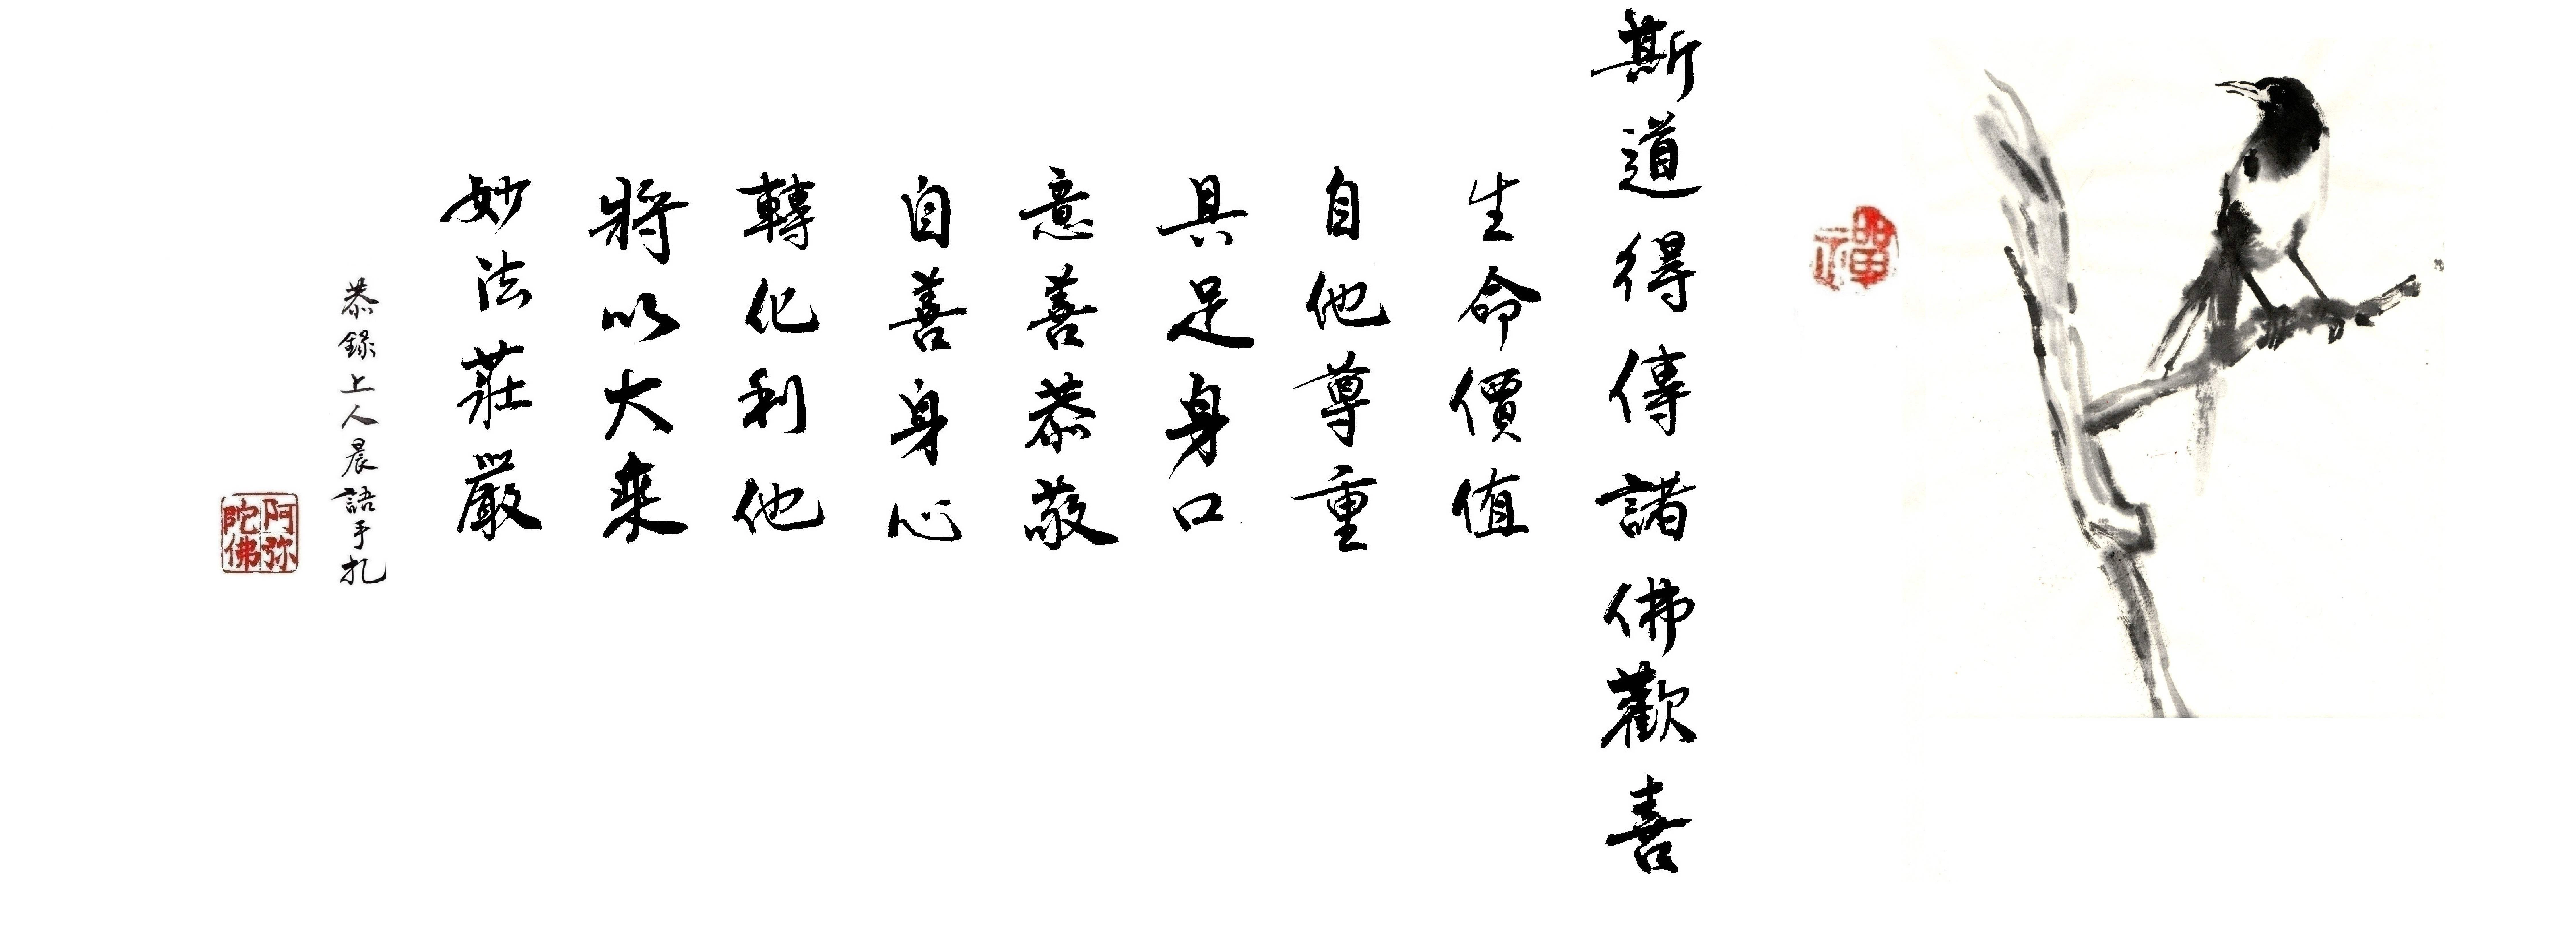 禪
斯道得傳諸佛歡喜
生命價值
自他尊重
具足身口
意善恭敬
自善身心
轉化利他
將以大乘
妙法莊嚴
恭錄上人晨語手札
阿弥陀佛